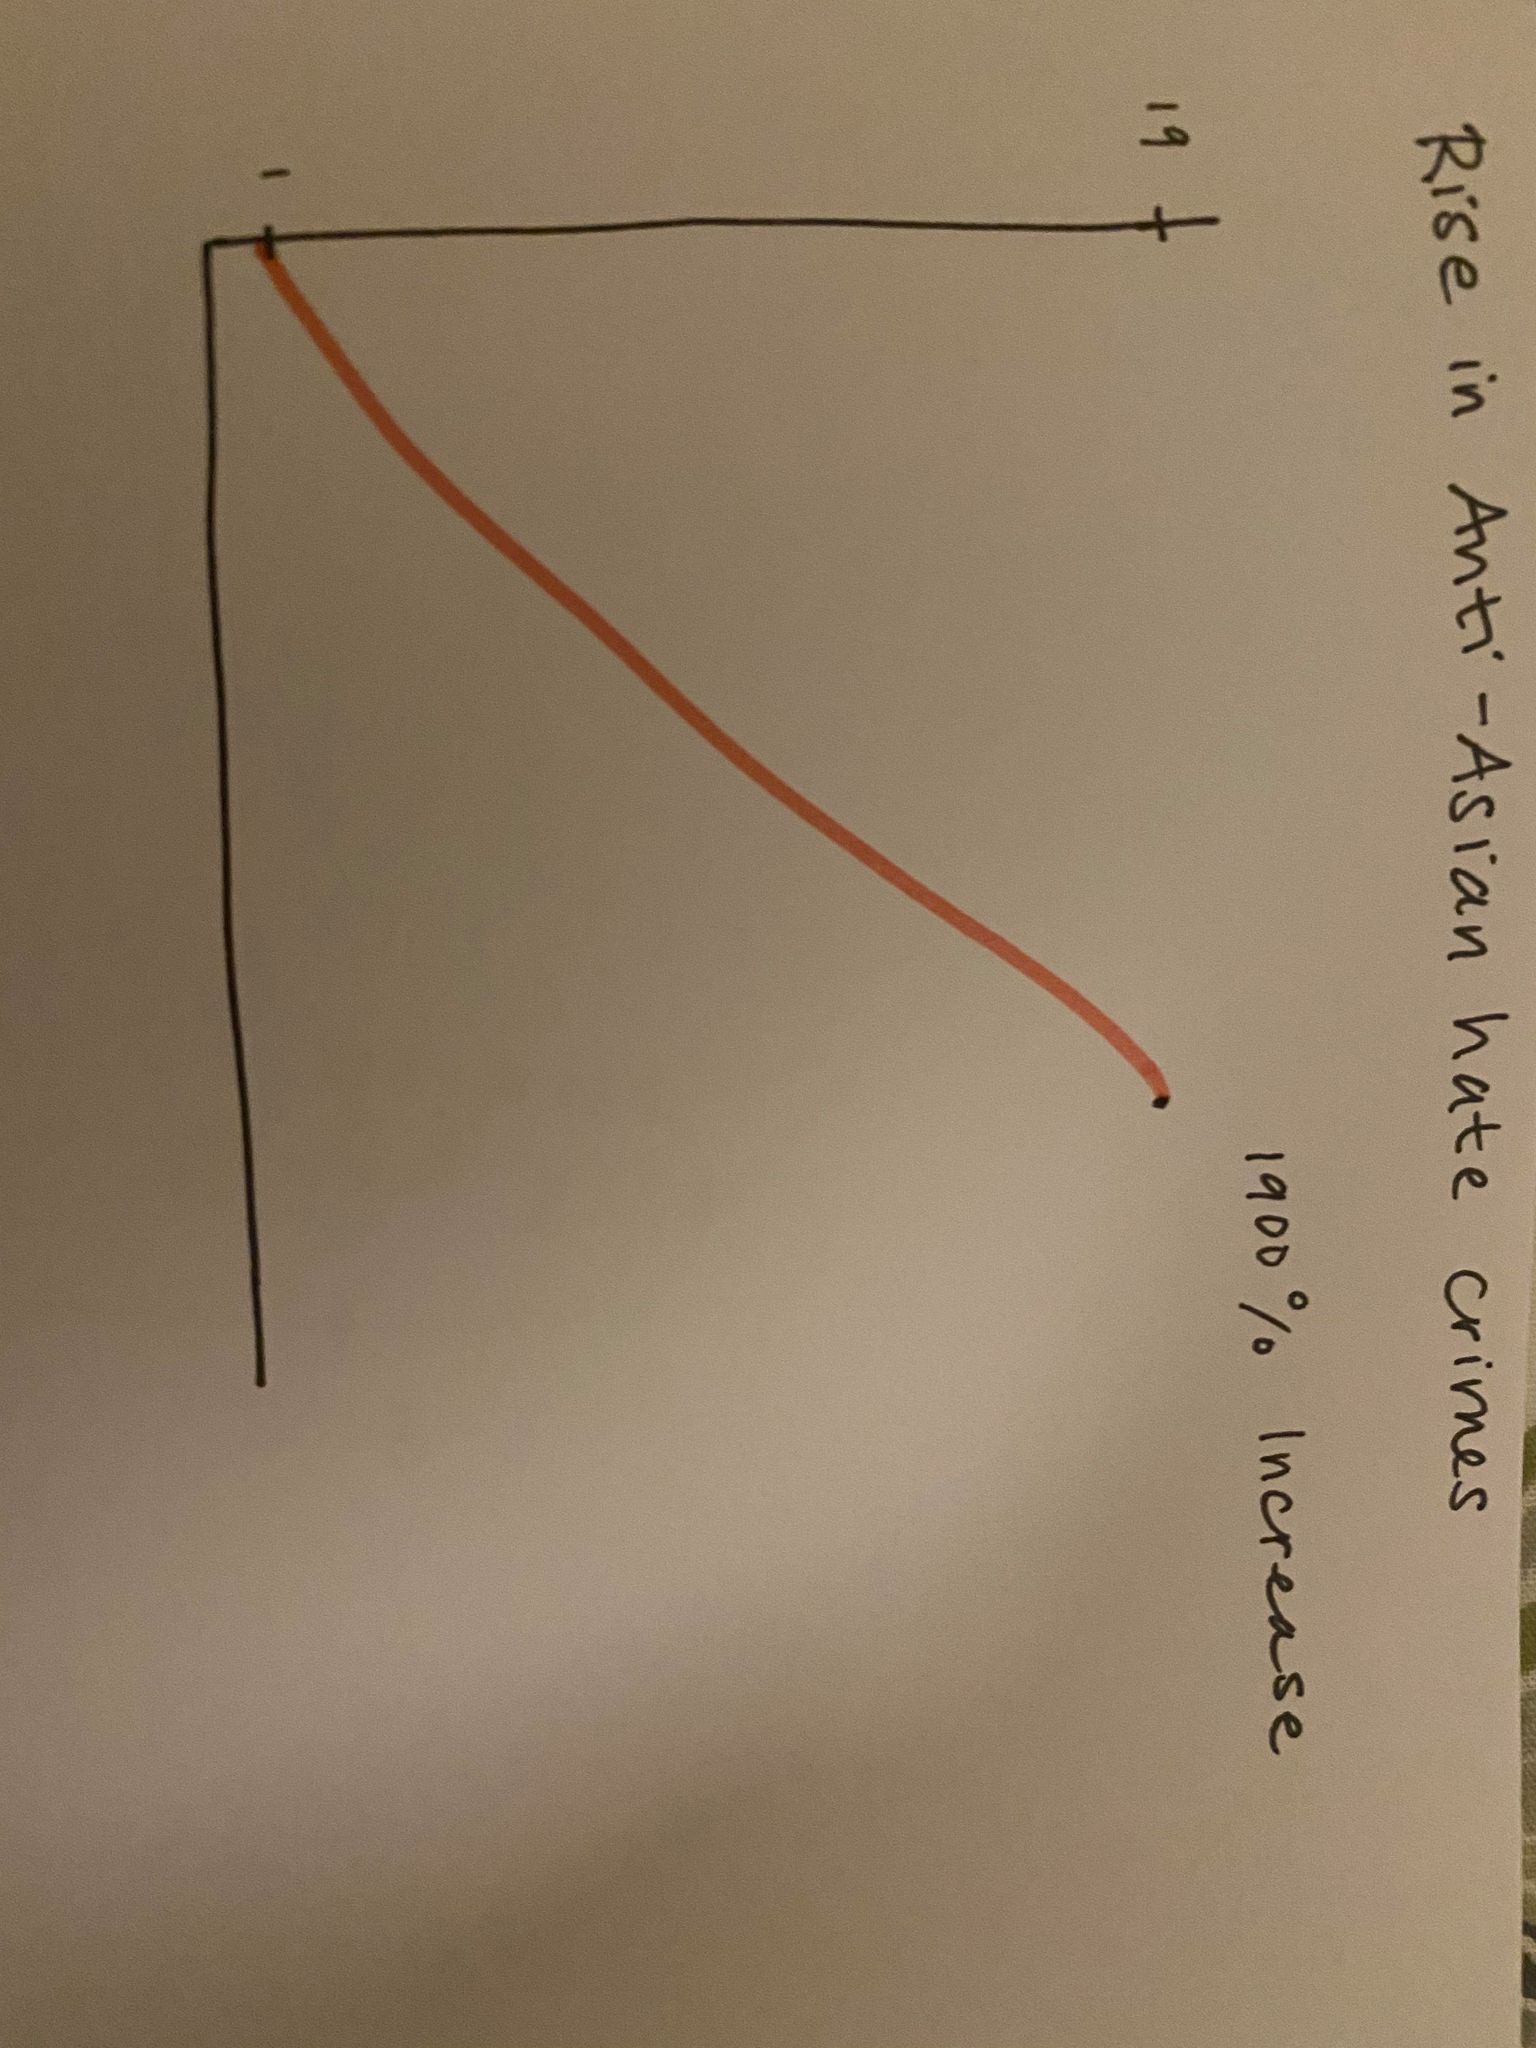 Rise in Anti-Asian hate crimes
1900% Increase
19
1